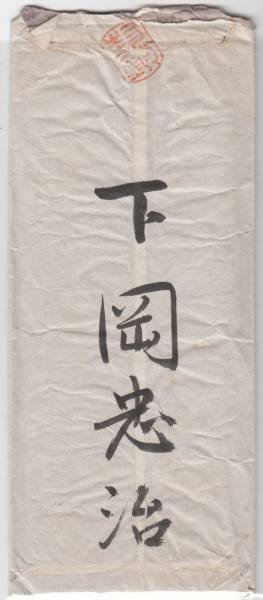 下岡忠治